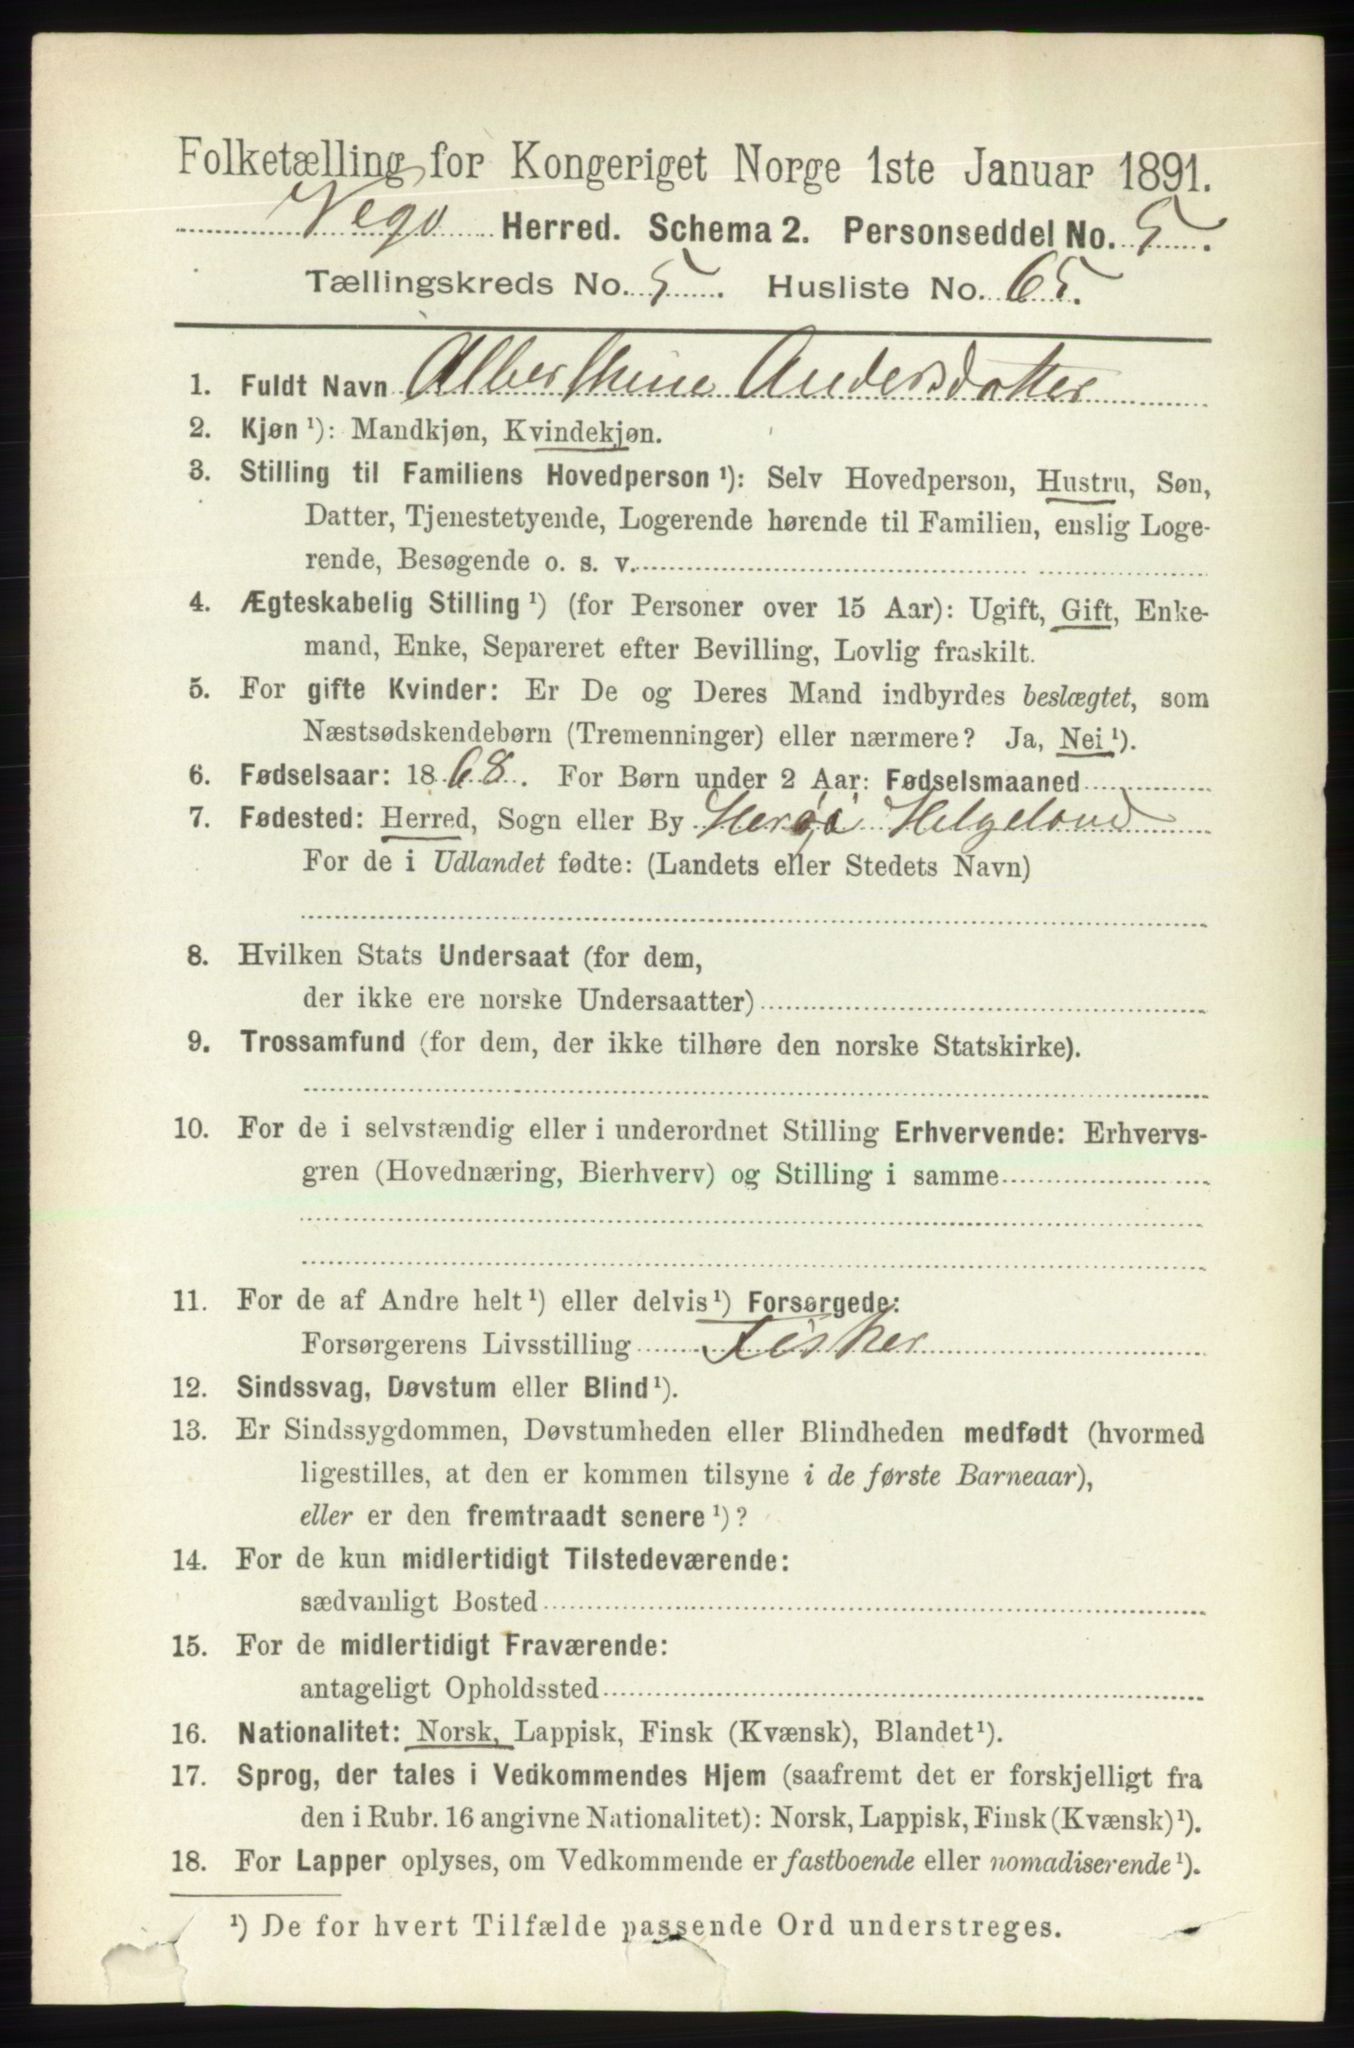 Folketælling for Kongeriget Norge 1ste Januar 1891.
Vego Herred. Schema 2. Personseddel No. 5.
Tællingskreds No. 5. Husliste No. 65.
1. Fuldt Navn Alberthine Andersdatter
2. Kjøn ¹): Mandkjøn, Kvindekjøn.
3. Stilling til Familiens Hovedperson ¹): Selv Hovedperson, Hustru, Søn,
Datter, Tjenestetyende, Logerende hørende til Familien, enslig Loge-
rende, Besøgende o. s. v.
4. Ægteskabelig Stilling ¹) (for Personer over 15 Aar): Ugift, Gift, Enke-
mand, Enke, Separeret efter Bevilling, Lovlig fraskilt.
5. For gifte Kvinder: Er De og Deres Mand indbyrdes beslægtet, som
Næstsødskendebørn (Tremenninger) eller nærmere? Ja, Nei ¹).
6. Fødselsaar: 1868. For Børn under 2 Aar: Fødselsmaaned
7. Fødested: Herred, Sogn eller By Herøi Helgeland
For de i Udlandet fødte: (Landets eller Stedets Navn)
8. Hvilken Stats Undersaat (for dem,
der ikke ere norske Undersaatter)
9. Trossamfund (for dem, der ikke tilhøre den norske Statskirke).
10. For de i selvstændig eller i underordnet Stilling Erhvervende: Erhvervs-
gren (Hovednæring, Bierhverv) og Stilling i samme
11. For de af Andre helt ¹) eller delvis ¹) Forsørgede:
Forsørgerens Livsstilling Fisker
12. Sindssvag, Døvstum eller Blind ¹).
13. Er Sindssygdommen, Døvstumheden eller Blindheden medfødt (hvormed
ligestilles, at den er kommen tilsyne i de første Barneaar),
eller er den fremtraadt senere ¹)?
14. For de kun midlertidigt Tilstedeværende:
sædvanligt Bosted
15. For de midlertidigt Fraværende:
antageligt Opholdssted
16. Nationalitet: Norsk, Lappisk, Finsk (Kvænsk), Blandet ¹).
17. Sprog, der tales i Vedkommendes Hjem (saafremt det er forskjelligt fra
den i Rubr. 16 angivne Nationalitet): Norsk, Lappisk, Finsk (Kvænsk) ¹).
18. For Lapper oplyses, om Vedkommende er fastboende eller nomadiserende ¹).
¹) De for hvert Tilfælde passende Ord understreges.